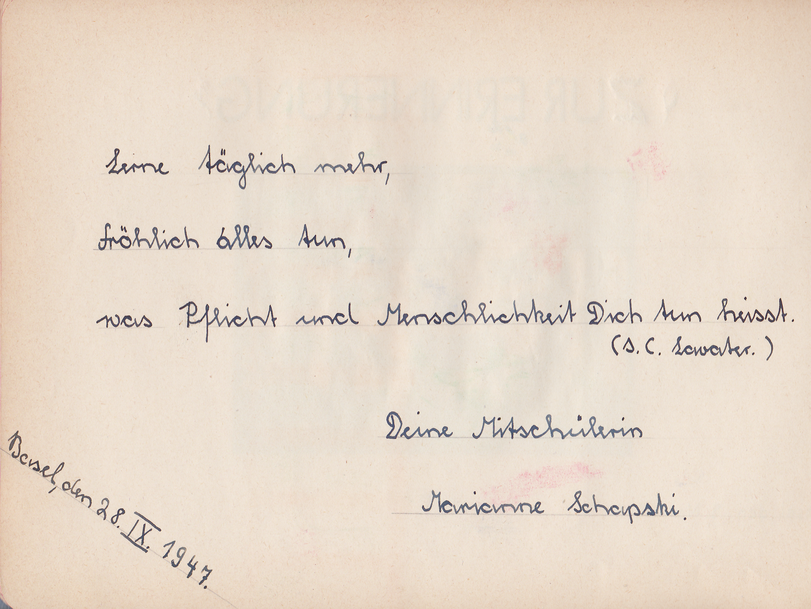 Lerne täglich mehr,
fröhlich alles tun,
was Pflicht und Menschlichkeit Dich tun heisst.
(J. C. Lavater.)
Deine Mitschülerin
Marianne Schapski.
Basel, den 28. IX. 1947.
ZUR ERINNERUNG